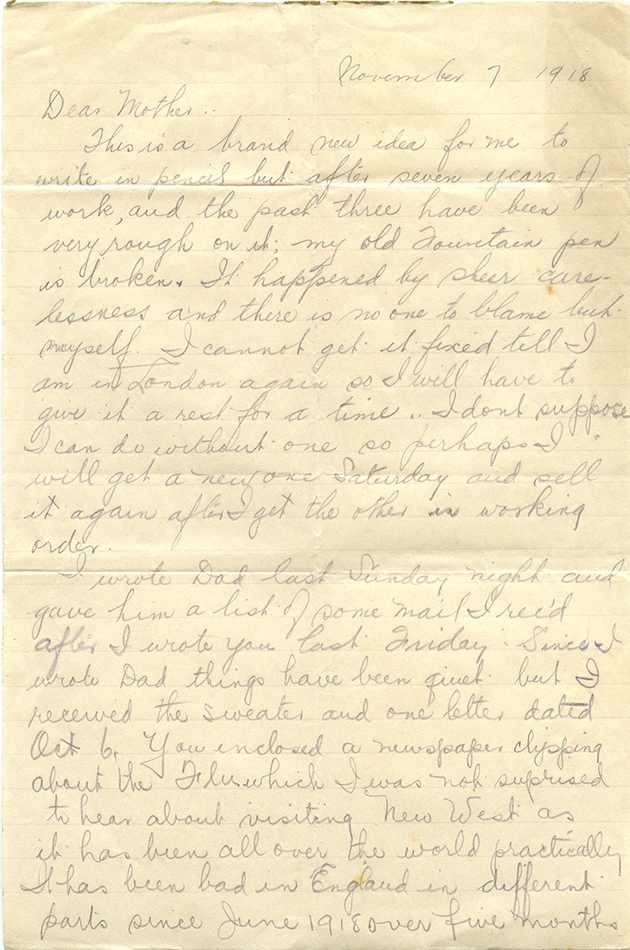 November 7 1918
Dear Mother..
This is a brand new idea for me to
write in pencil but after seven years of
work, and the past three have been
very rough on it; my old Fountain pen
is broken. It happened by sheer care-
lessness and there is no one to blame but
myself. I cannot get it fixed till I
am in London again so I will have to
give it a rest for a time .. I dont suppose
I can do without one so perhaps I
will get a new one Saturday and sell
it again after I get the other in working
order.
I wrote Dad last Sunday night and
gave him a list of some mail I rec'd
after I wrote you last Friday. Since I
wrote Dad things have been quiet but I
received the sweater and one letter dated
Oct 6. You enclosed a newspaper clipping
about the Flu which I was not suprised
to hear about visiting New West as
it has been all over the world practically
It has been bad in England in different
parts since June 1918 over five months